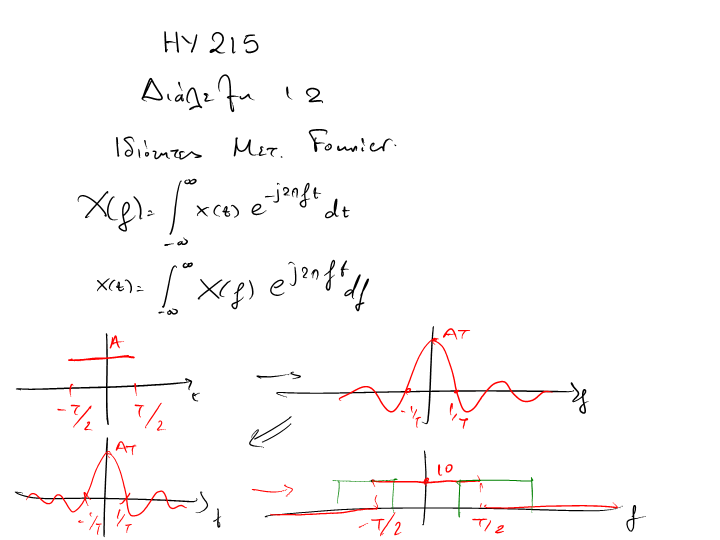 HY 215
Διάλεξη 12
Ιδιότητες Μετ. Fourier.
X(f) = ∫_{-∞}^{∞} x(t) e^{-j2πft} dt
x(t) = ∫_{-∞}^{∞} X(f) e^{j2πft} df
A
-T/2 T/2 t
AT
-1/T 1/T f
AT
-1/T 1/T t
10
-T/2 T/2 f